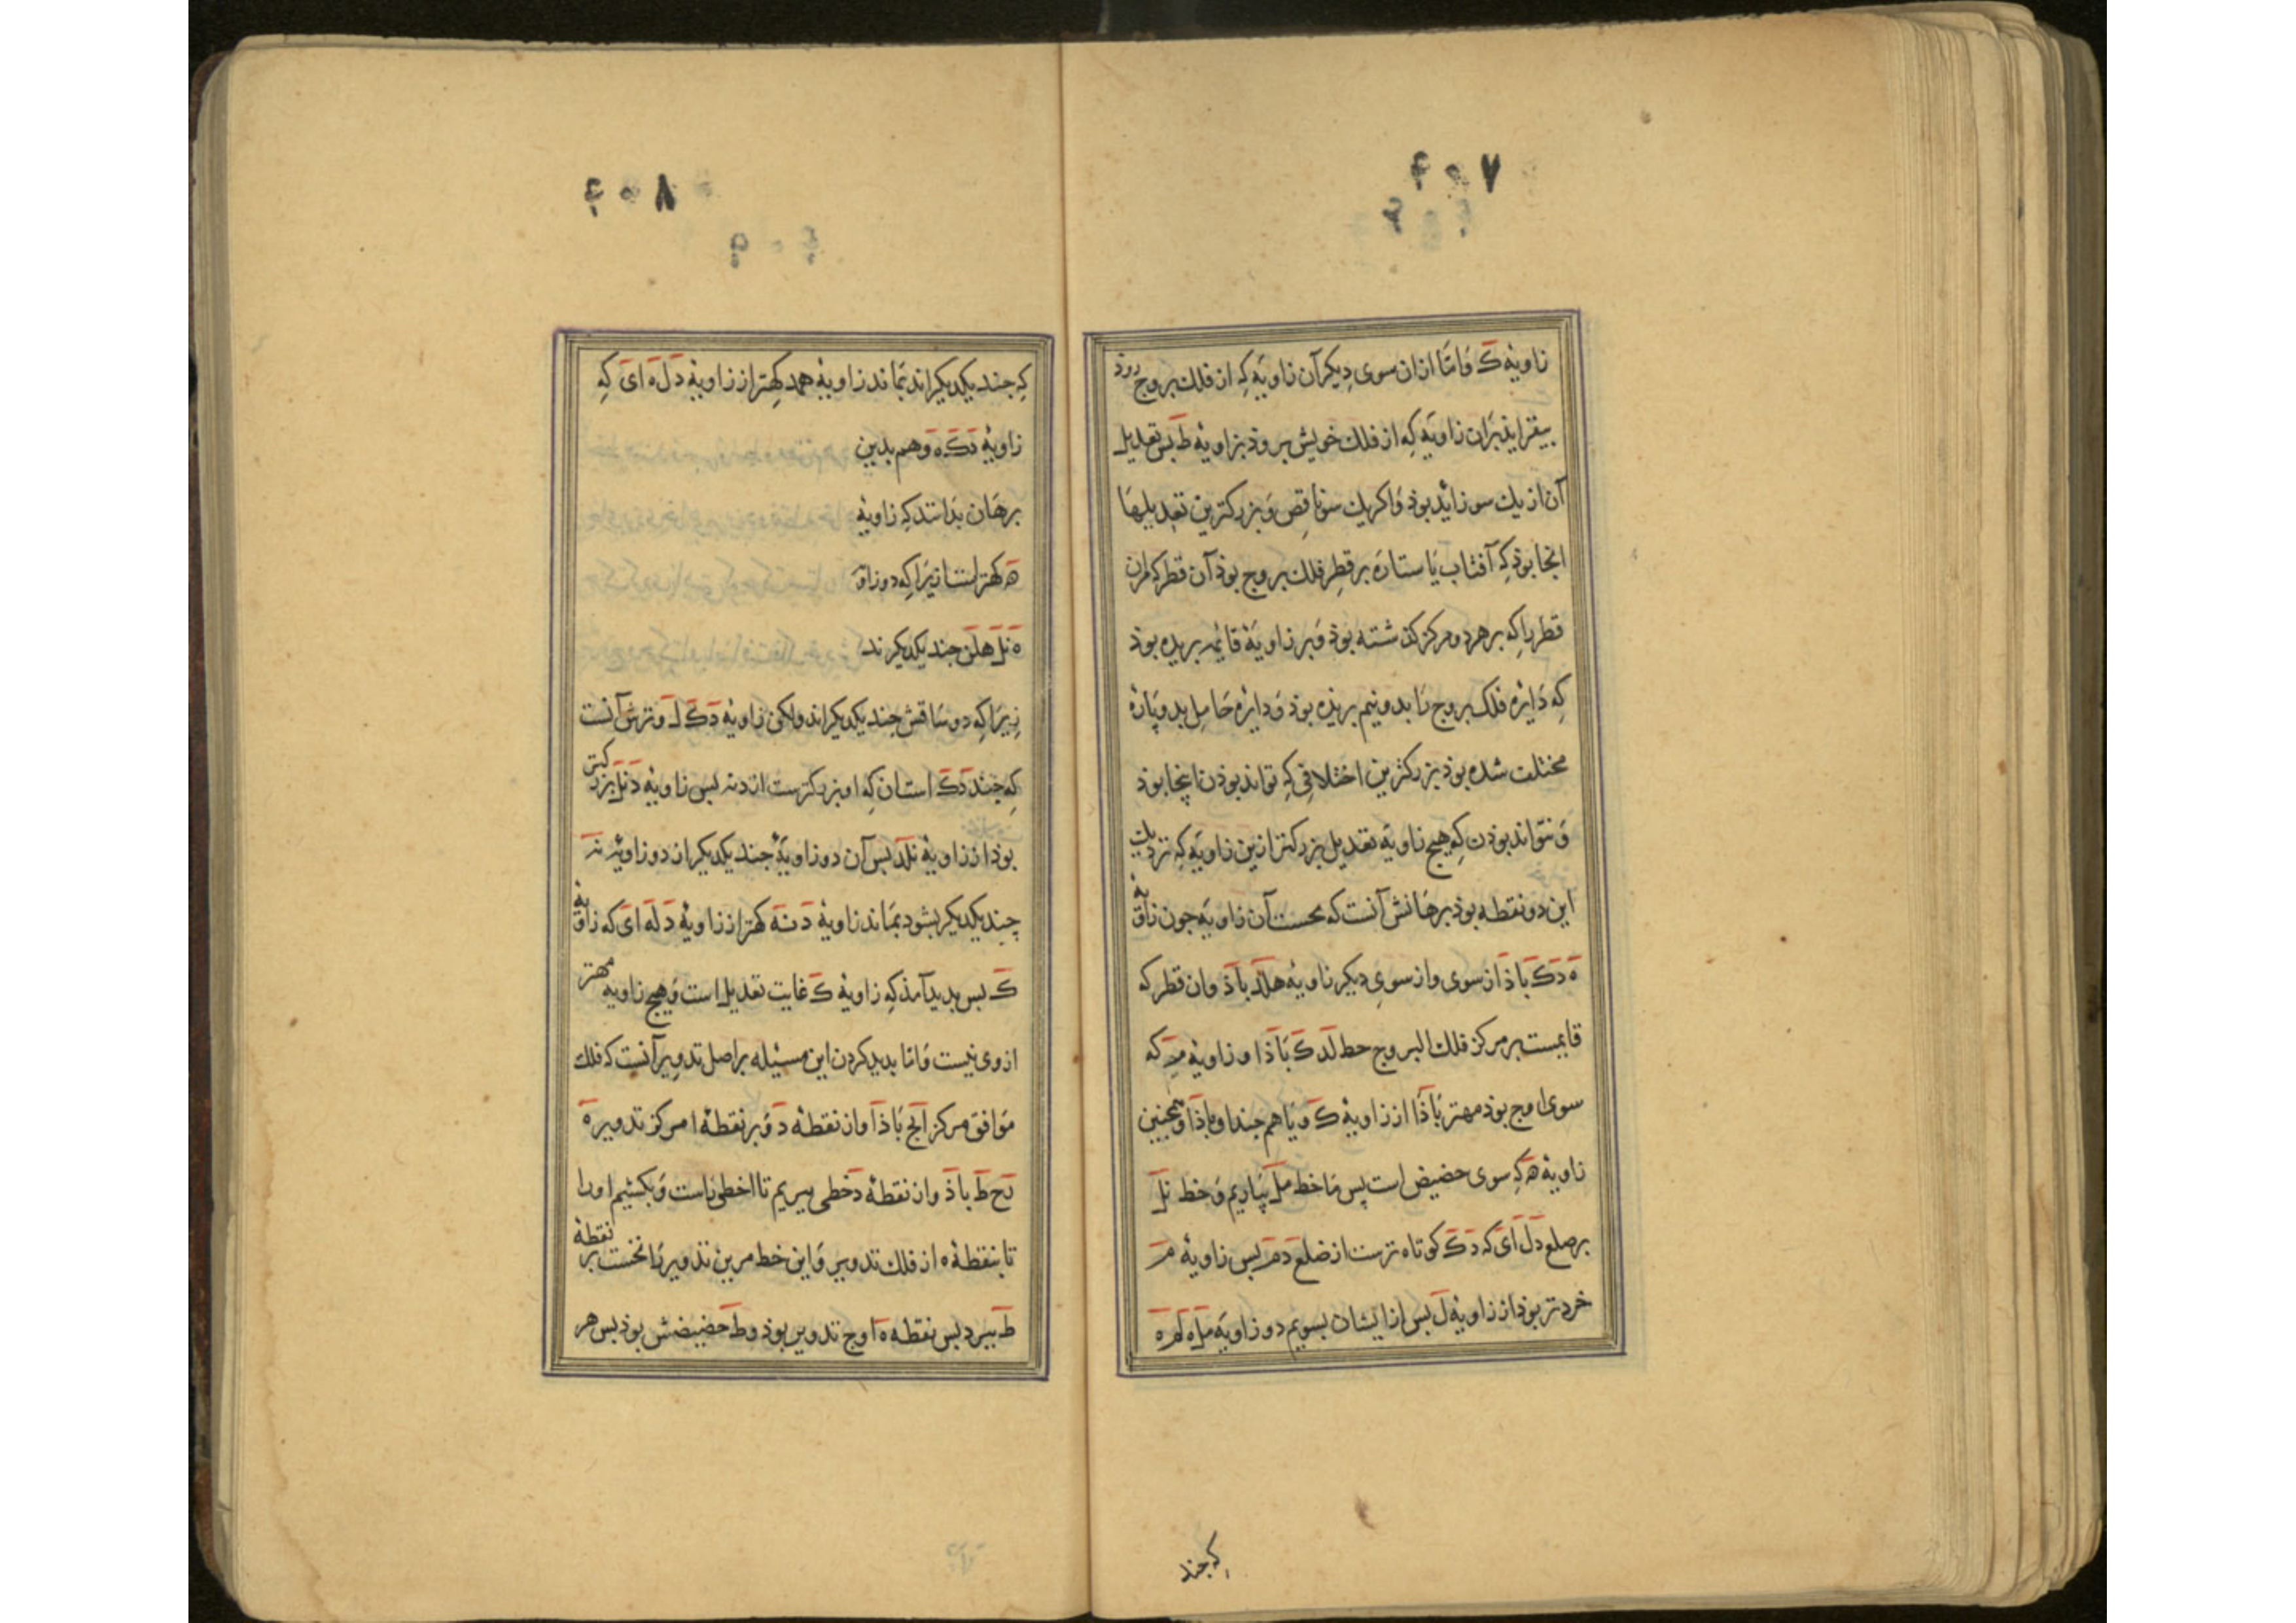 ۴۰۷
زاویهٔ ک وَامّا ازان سوی دیکر آن زاویَه کِه از فلك بروج رود
بیفزاید بَرآن زاویَه کِه از فلك خویش بروذ بزاویهٔ ط بس تعدیل
آن از یك سو زائد بوذ وَاکر یك سو ناقِص وَ بزرکترین تعدیلهَا
انجا بوذ کِه آفتاب یَا ستارَه بر قطرِ فلك بروج بوذ آن قطر که مران
قطر را کِه بر هر دو مرکز کذشته بوذ وَ بر زاویَهٔ قایمه بریده بوذ
کِه دَایرهٔ فلك بروج رَا بدو نیم بریذه بوذ وَ دایرهٔ حَامِل بدو پَارهٔ
مختلف شده بوذ بزرکترین اختلافی کِه تواند بوذن انجا بوذ
وَ نتواند بوذن کِه هیج زاویَه تعدیل بزرکتر ازین زاویَه کِه نزدیك
این دو نقطه بوذ برهَانش آنست که نخست آن زاویَه جون زاویهٔ
ه دَکَ باذ ازسوی وازسویِ دیکر زاویهٔ هلد باذ وان قطر که
قایمست بر مرکز فلك البروج خط لدک بَاذ او زاویهٔ م که
سوی اوج بوذ مهتر بَاذا از زاویهٔ ک وَ یَا هم جند او باذ او همجنین
زاویهٔ ه کِه سوی حضیض است پس مَا خط مل بیَاریم وَ خط نل
بر ضلع دل ای که دک کوتاه ترست از ضلع دم بس زاویهٔ م
خردتر بوذ از زاویهٔ ل بس از ایشان بسویم دو زاویَهٔ مله لمه
کِه جند
۴۰۸
کِه جند یکدیکراند بمَاند زاویهٔ همد کِهتر از زاویهٔ دله ای کِه
زاویهٔ دکه وَهم بدین
برهَان بدَانند کِه زاویهٔ
ه کهتراست ازیرَا کِه دو زاویَهٔ
ه نل هلن جند یکدیکرند
زیرَا کِه دو سَاقش جند یکدیکراند ولکن زاویهٔ دکل وترش آنست
کِه جند دک است ان کِه او بزرکترست از دن بس زاویهٔ دنل بزرکتر
بوذ از زاویهٔ نلد بس آن دو زاویَهٔ جند یکدیکر از دو زاویهٔ نه
جند یکدیکر بشود بمَاند زاویهٔ دنه کهتر از زاویهٔ دله ای که زاویهٔ
ک بس بدید آمذ کِه زاویهٔ ک غایت تعدیل است وَ هیج زاویه مهتر
ازوی نیست وَ امّا بدید کردن این مسئیله بر اصل تدویر آنست که فلك
موَافق مرکز ابج بَاذ او ان نقطهٔ د وَ بر نقطهٔ ا مرکز تدویر ه
دح ط باذ وان نقطهٔ د خطی ببریم تا ا خطی راست وَ بکشیم او را
تا بنقطهٔ ه از فلك تدویر وَ این خط مرین تدویر رَا نخست بر نقطهٔ
ط ببرد بس نقطه ه اوج تدویر بوذ وط حضیضش بوذ بس هر